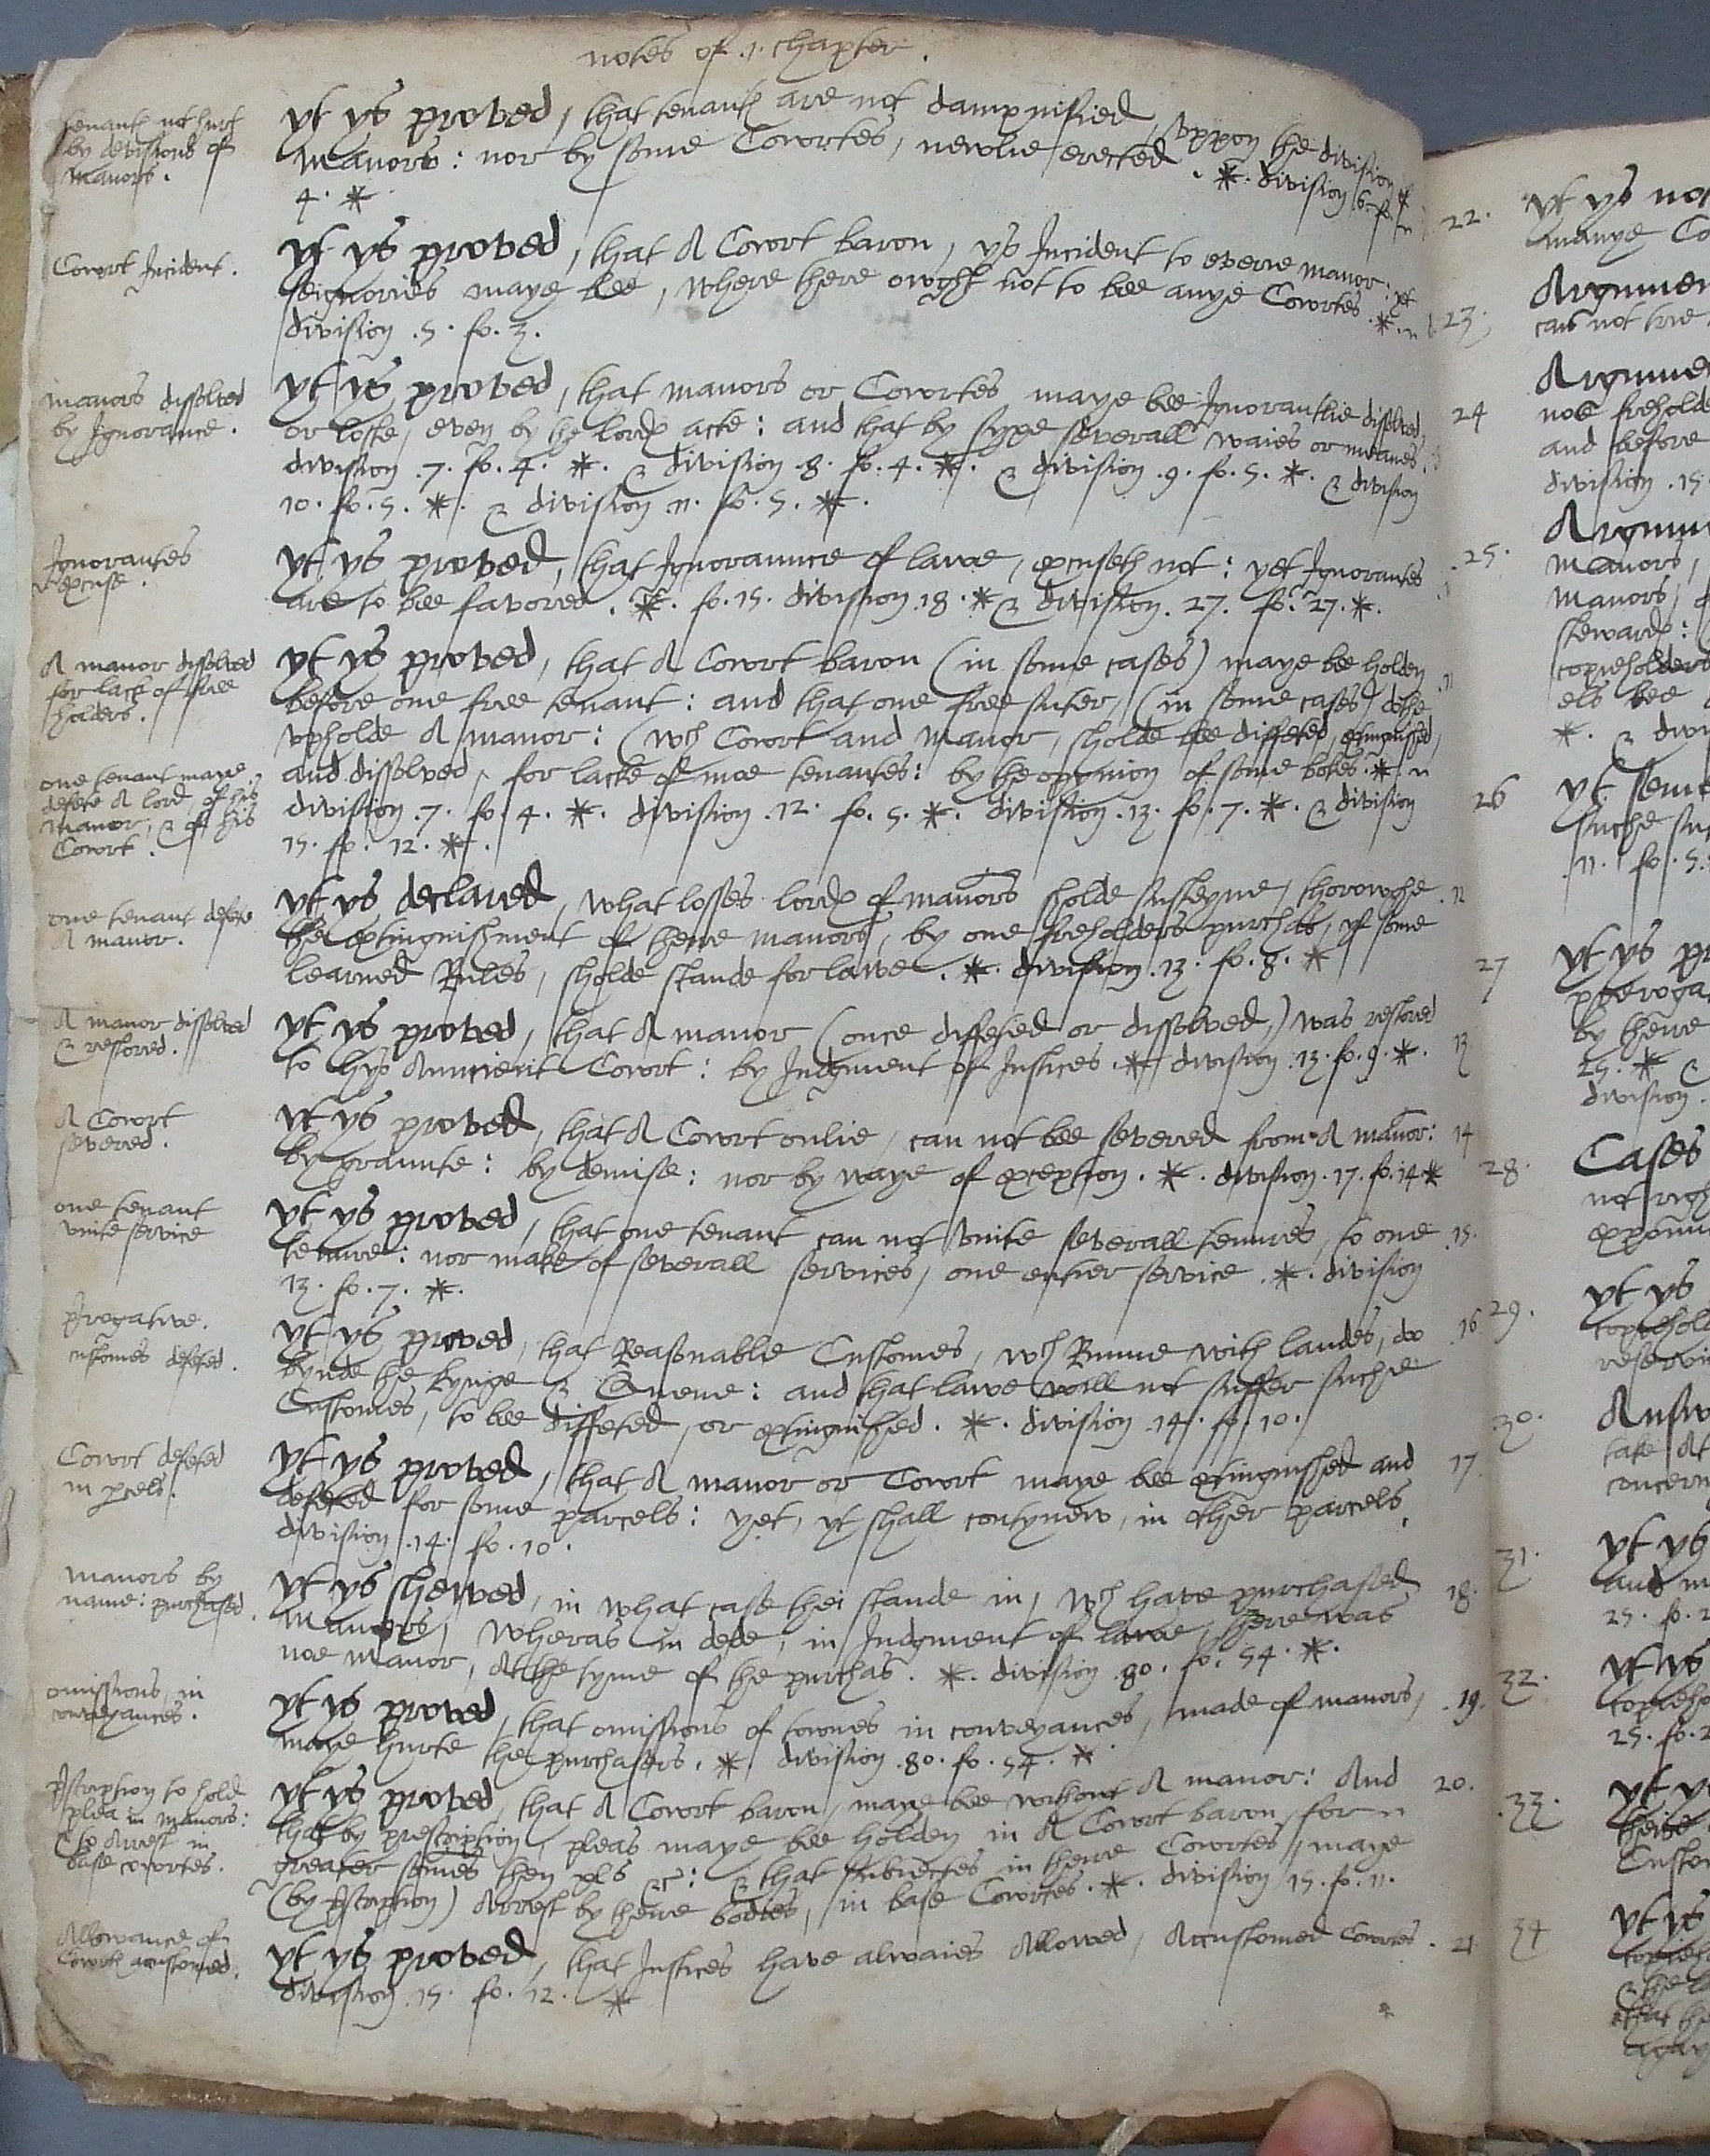 notes of .1. chapter.
tenantes not hurt
by devisions of
manors.
yt ys proved, that tenantes are not dampnified, uppon the division of
manors: nor by some Cowrtes, newlie erected . *. division .6. fo.
4. *
Cowrt Incident.
yt ys proved, that A Cowrt baron, ys Incident to everie manor: yet
seignories maye bee, where there owght not to bee anye Cowrtes .*.
division .5. fo. 3.
manors dissolved
by Ignorance.
yt ys proved, that manors or Cowrtes maye bee Ignorantlie dissolved
or loste, even by the lordes acte: and that by syxe severall waies or meanes.
division .7. fo. 4. *. & division .8. fo. 4. *. & division .9. fo. 5. *. & division
10. fo. 5. *. & division .11. fo. 5. *.
Ignorantes
excuse.
yt ys proved, that Ignoraunce of lawe, excuseth not: yet Ignorantes
are to bee favored. *. fo. 15. division .18. * & division. 27. fo. 27. *.
A manor dissolved
for lack of free
holders.
yt ys proved, that A Cowrt baron (in some cases) maye bee holden
before one free tenant: and that one free suter, (in some cases) dothe
upholde A manor: (wch Cowrt and Manor, sholde bee diffeted, extinguished,
one tenant maye
defete A lord, of his
manor, & of his
Cowrt.
and dissolved, for lacke of moe tenantes: by the oppinion of some bokes. *.
division .7. fo. 4. *. division .12. fo. 5. *. division .13. fo. 7. *. & division
15. fo. 12. *.
one tenant defete
A manor.
yt ys declared, what losses lordes of manors sholde susteyne, thorowghe .12
the extinguishment of theire manors, by one freholders purchas, yf some
learned Rules, sholde stande for lawe. *. division .13. fo. 8. *
A manor dissolved
& restored.
yt ys proved, that A manor (once diffeted or dissolved,) was restored
to hys Auncient Cowrt: by Judgment of Justices .* division .13. fo. 9. *. 13
A Cowrt
severed.
yt ys proved, that A Cowrt onlie, can not bee severed from A manor: 14
by graunte: by demise: nor by waye of exception. *. division .17. fo. 14 *
one tenant
unite service
yt ys proved, that one tenant can not unite severall tenures, to one .15.
tenure: nor make of severall services, one entier service .*. division
13. fo. 7. *.
Progative.
customes defeted.
yt ys proved, that Reasonable Customes, wch Runne with landes, do .16
bynde the kynge & Quene: and that lawe will not suffer suche
Customes, to bee diffeted, or extinguished. *. division .14. fo. 10.
Cowrt defeted
in pcels.
yt ys proved, that A manor or Cowrt maye bee extinguisshed and 17
defeted for some parcels: yet, yt shall contynew, in other parcels.
division .14. fo. 10.
manors by
name: purchased.
yt ys shewed, in what case thei stande in, wch have purchased 18.
Manors, wheras in dede, in Judgment of lawe, there was
noe manor, At the tyme of the purchas. *. division .80. fo. 54. *.
omissions, in
conveyances.
yt ys proved, that omissions of townes in conveyances, made of manors, .19.
maye hurte the purchasers. *. division .80. fo. 54. *
Pscription to hold
plea in manors:
& to Arrest in
base cowrtes.
yt ys proved, that A Cowrt baron, maye bee without A manor: And 20.
that by prescription, pleas maye bee holden in A Cowrt baron, for
greater somes then xls &c: & that subiectes in theire Cowrtes, maye
(by pscription) Arrest by theire bodies, in base Cowrtes. *. division 15. fo. 11.
Allowance of
Cowrtes accustomed.
yt ys proved, that Justices have alwaies Allowed, Accustomed Cowrtes. 21
division .15. fo. 12. *
22. yt ys not
manye Co
23. Argumen
can not
24 Argumen
noe freholde
and before
division .15.
25. Argum
Manors,
Manors,
stewardes:
copieholders
els bee
*. & divi
26 yt seme
suche su
.11. fo. 5.
27 yt ys pr
preroga
by theire
25. * &
division.
28. Cases
not righ
expoun
29. yt ys
copiehol
reservi
30. Answ
take At
concern
31. yt ys
and m
25. fo. 2
32. yt ys
copieho
25. fo. 2
33. yt ys
theire
Custom
34 yt ys
copieho
& the lo
that the
agay